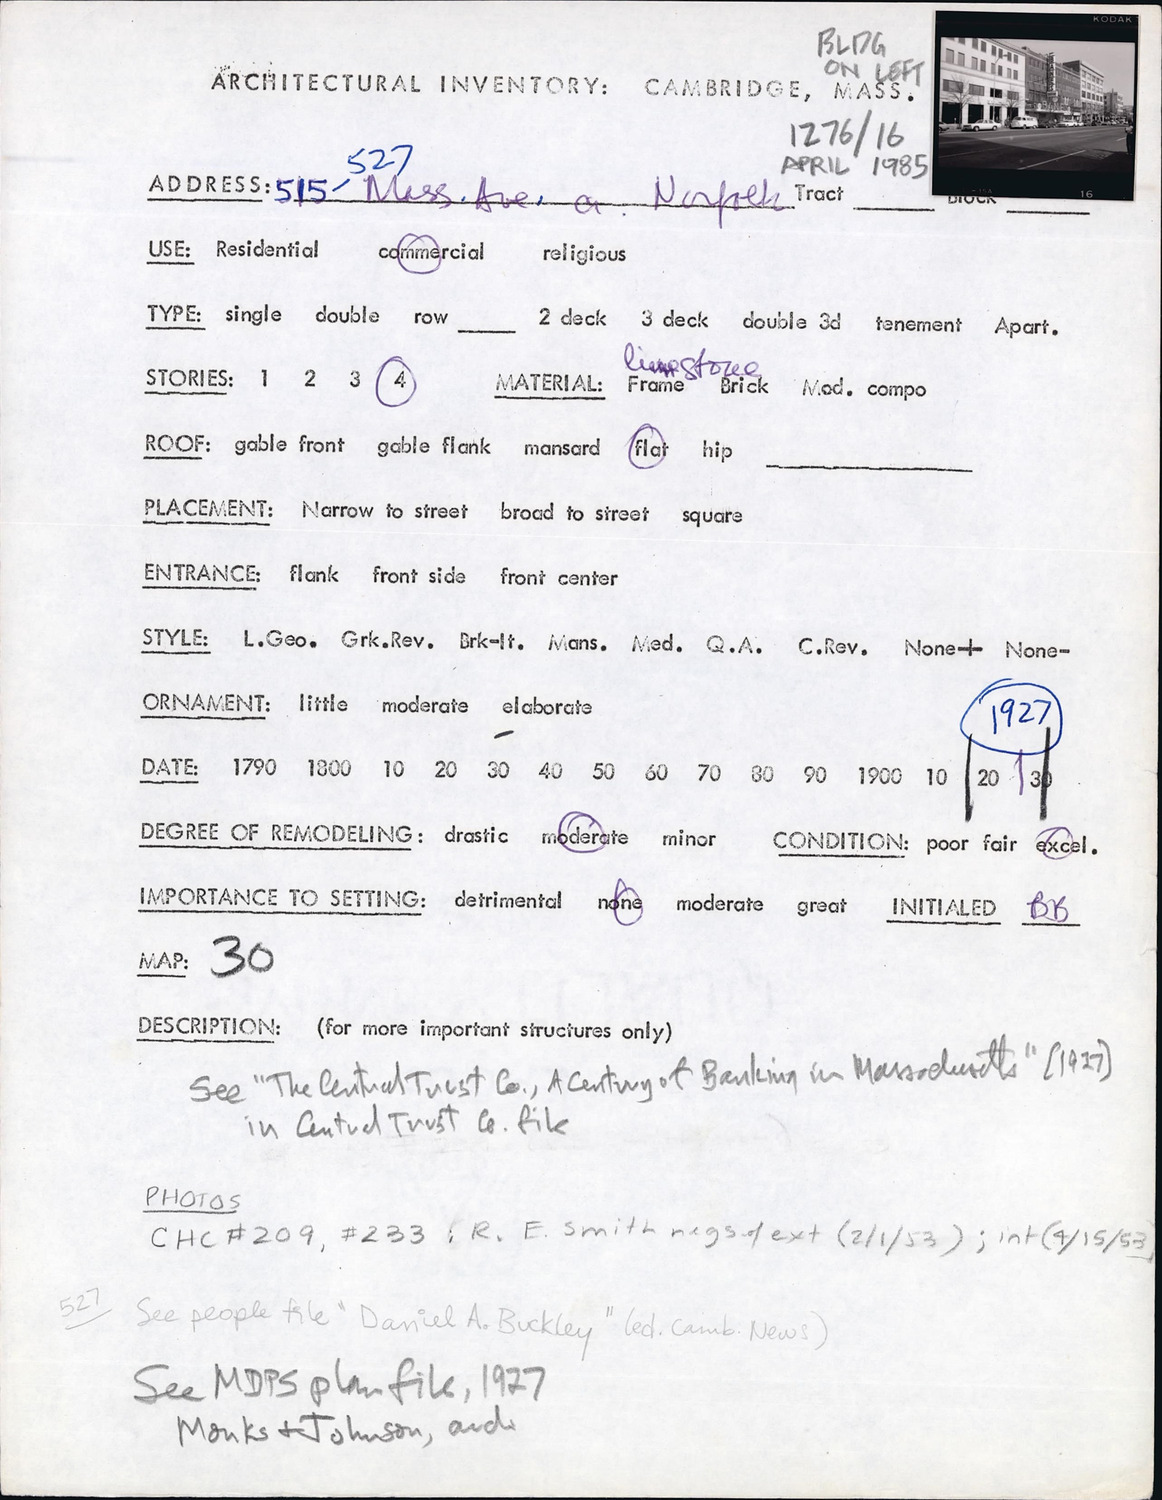 KODAK
BLDG
ON LEFT
ARCHITECTURAL INVENTORY: CAMBRIDGE, MASS.
1276/16
APRIL 1985
16
527
ADDRESS: 515- Mass. Ave. a Norfolk Tract Block
USE: Residential commercial religious
TYPE: single double row 2 deck 3 deck double 3d tenement Apart.
limestone
STORIES: 1 2 3 4 MATERIAL: Frame Brick Mod. compo
ROOF: gable front gable flank mansard flat hip
PLACEMENT: Narrow to street broad to street square
ENTRANCE: flank front side front center
STYLE: L.Geo. Grk.Rev. Brk-It. Mans. Med. Q.A. C.Rev. None+ None-
ORNAMENT: little moderate elaborate
1927
DATE: 1790 1800 10 20 30 40 50 60 70 80 90 1900 10 20 30
DEGREE OF REMODELING: drastic moderate minor CONDITION: poor fair excel.
IMPORTANCE TO SETTING: detrimental none moderate great INITIALED BB
MAP: 30
DESCRIPTION: (for more important structures only)
See "The Central Trust Co., A Century of Banking in Massachusetts" (1927)
in Central Trust Co. file
PHOTOS
CHC #209, #233 ; R. E. Smith negs of ext (2/1/53) ; int (4/15/53
527 See people file "Daniel A. Buckley" (ed. Camb. News)
See MDPS plan file, 1927
Monks + Johnson, arch